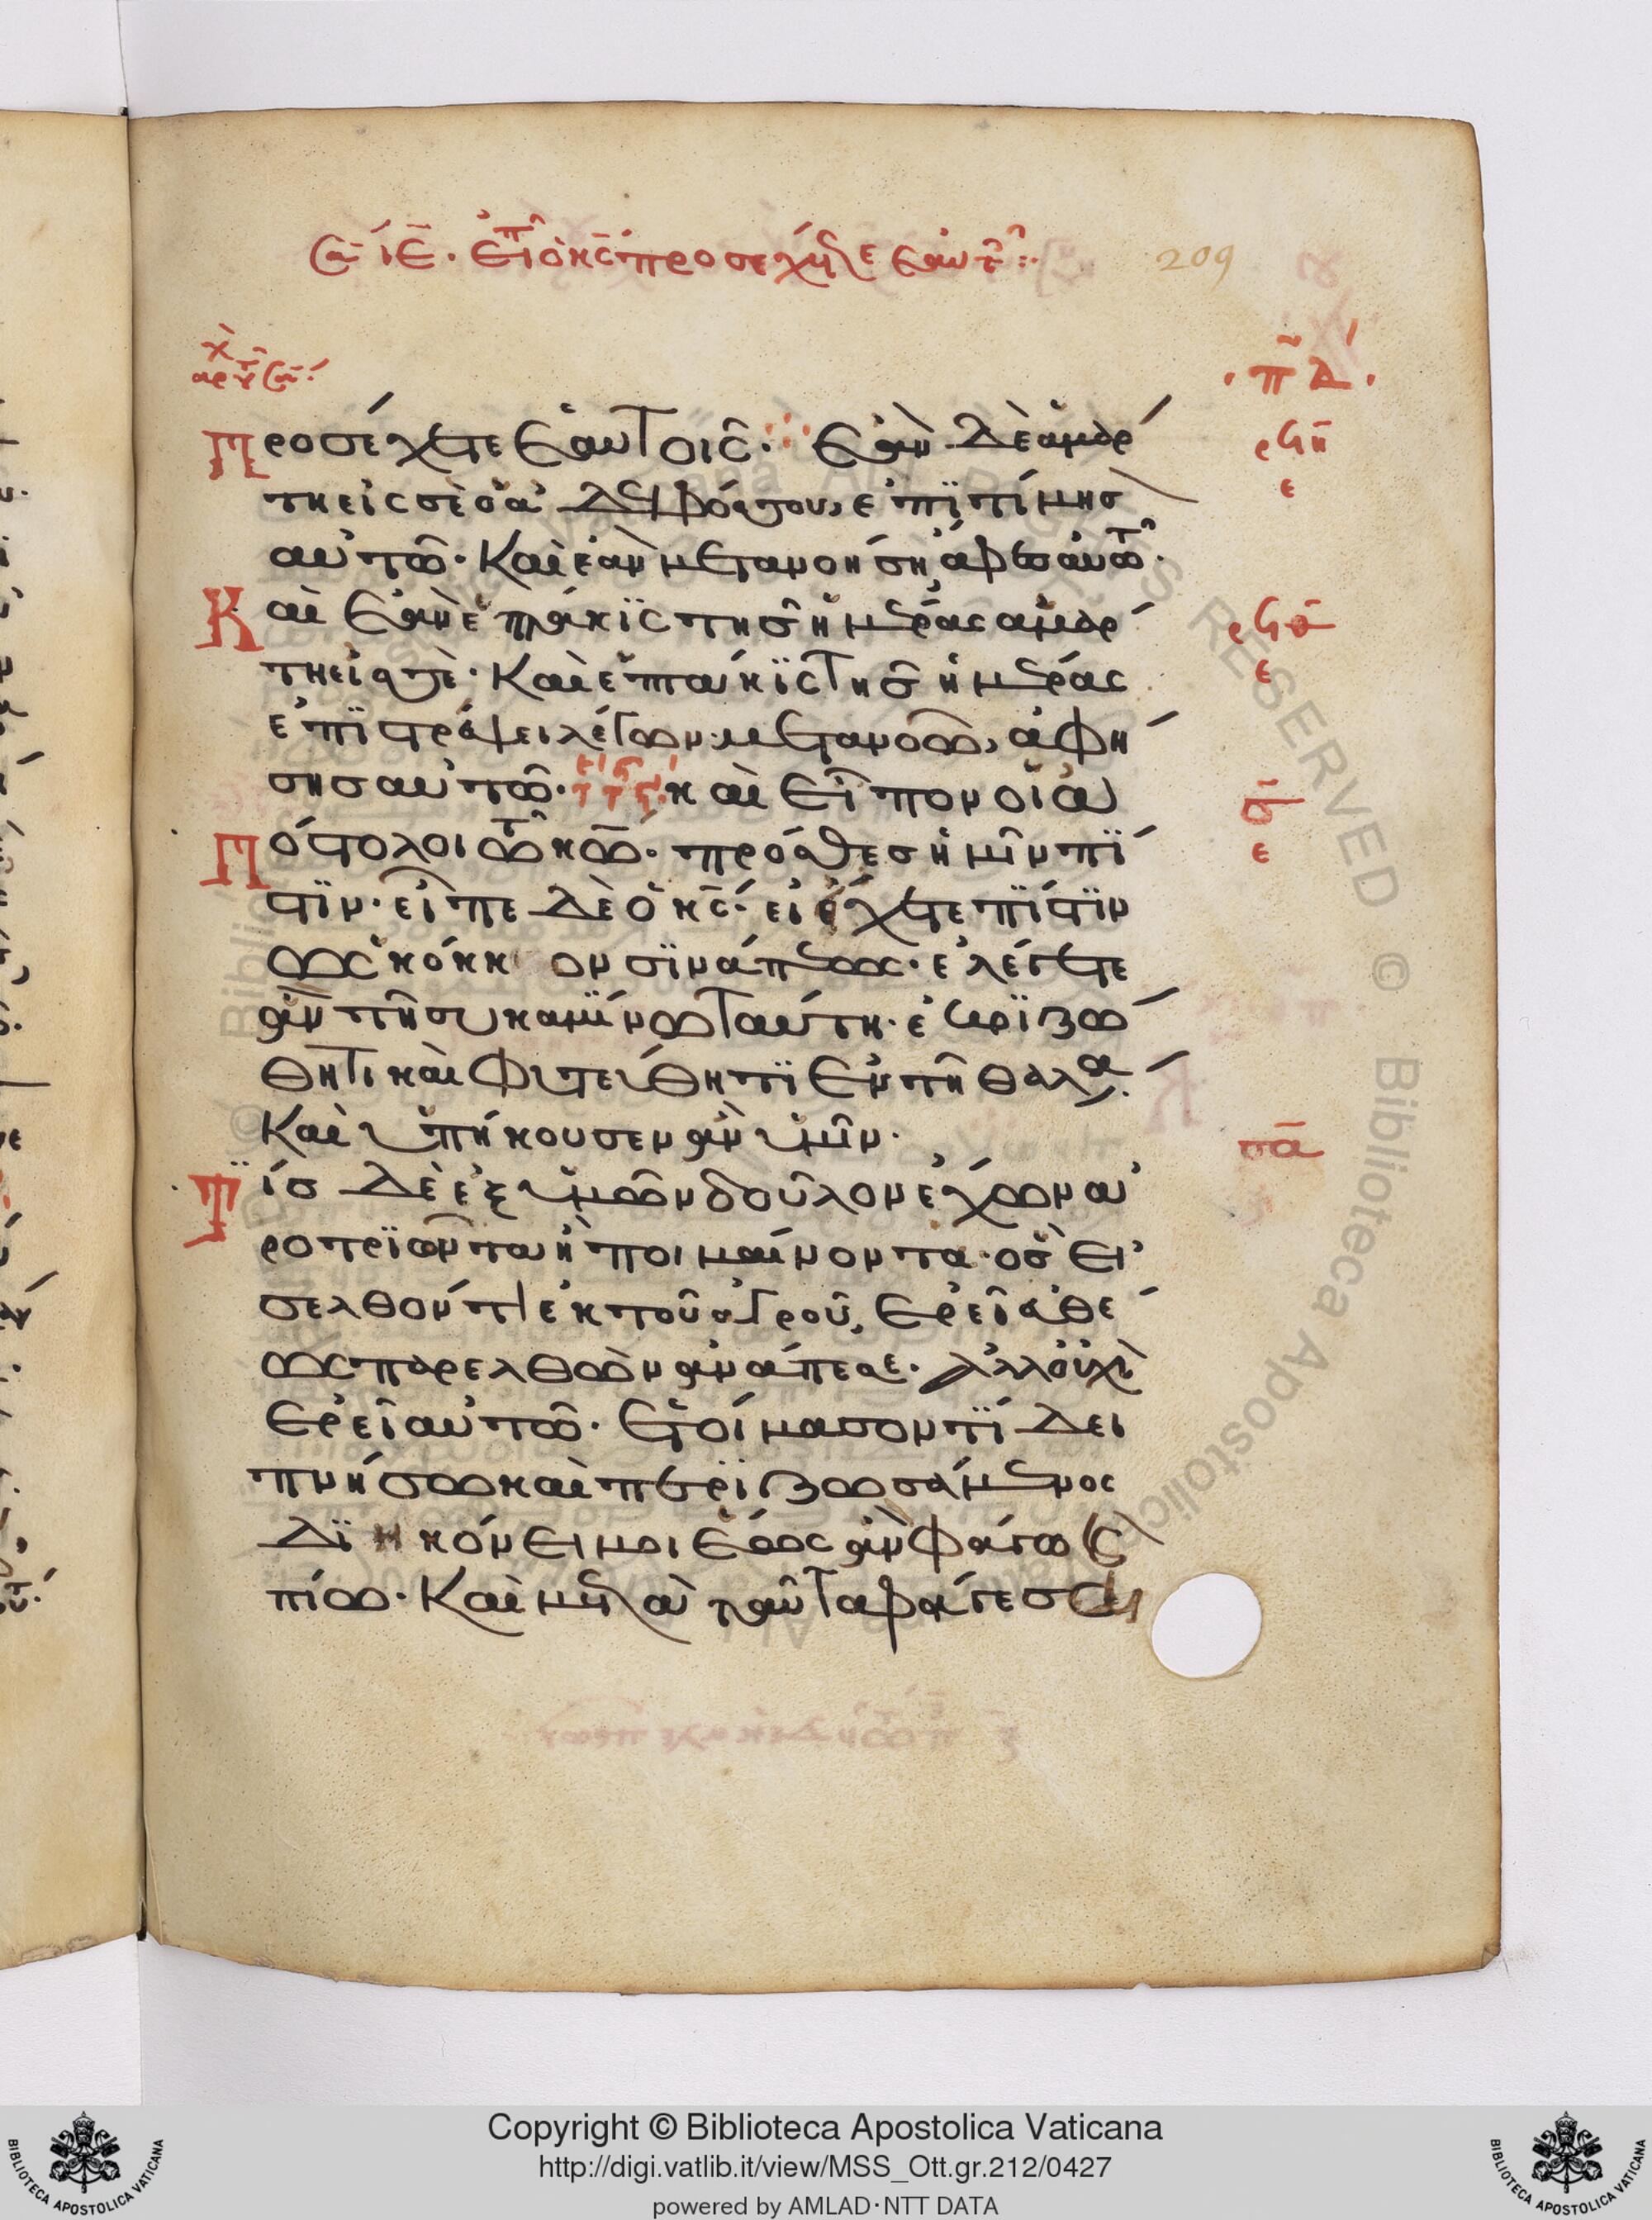 Σα ιε. επ ὁ κς προσέχετε ἑαυτ
209
αρχ τ Σα
πδ
Προσέχετε ἑαυτοῖς· Ἐὰν δὲ ἁμάρ
τη εἰς σὲ ὁ ἀδελφός σου, ἐπϊτίμησ
αὐτῶ· Καὶ ἐὰν μετανοήση, ἄφες αὐτῶ·
Καὶ ἐὰν ἑπτάκϊς τῆς ἡμέρας ἁμάρ
τη εἰς σὲ· Καὶ ἑπτάκϊς τῆς ἡμέρας
ἐπϊστρέψει λέγων· μετανοῶ, ἀφή
σης αὐτῶ· καὶ εἶπον οἱ ἀ
πόστολοι τῶ κω· πρόσθες ἡμῖν πί
στϊν· εἶπε δὲ ὁ κς· εἰ ἔχετε πίστϊν
ὡς κόκκον σϊνάπεως· ἐλέγετε
ἂν τῆ συκαμίνω ταύτη· ἐκρϊζώ
θητι καὶ φυτεύθητϊ ἐν τῆ θαλασ
Καὶ ὑπήκουσεν ἂν ὑμῖν·
Τίς δὲ ἐξ ὑμῶν δοῦλον ἔχων ἀ
ροτρϊῶντα ἢ ποιμαίνοντα· ὃς εἰ
σελθόντι ἐκ τοῦ ἀγροῦ, ἐρεῖ εὐθέ
ως παρελθὼν ἀνάπεσε· ἀλλ' οὐχὶ
ἐρεῖ αὐτῶ· ἑτοίμασον τϊ δει
πνήσω καὶ περϊζωσάμενος
δϊηκόνει μοι ἕως ἂν φάγω κ
πίω· Καὶ μετὰ ταῦτα φάγεσαι
ρϟη
ε
ρϟθ
ε
σ
ε
σα
Copyright © Biblioteca Apostolica Vaticana
http://digi.vatlib.it/view/MSS_Ott.gr.212/0427
powered by AMLAD·NTT DATA